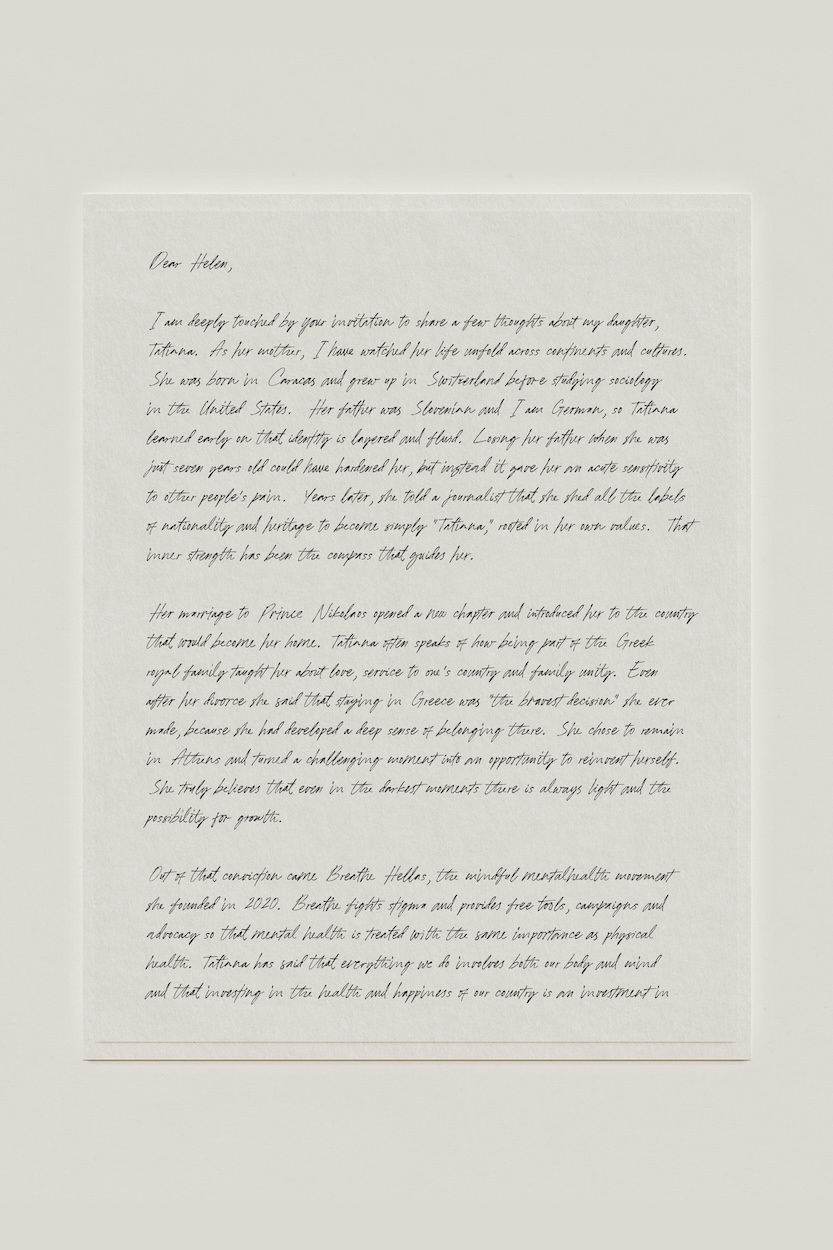 Dear Helen,
I am deeply touched by your invitation to share a few thoughts about my daughter,
Tatiana. As her mother, I have watched her life unfold across continents and cultures.
She was born in Caracas and grew up in Switzerland before studying sociology
in the United States. Her father was Slovenian and I am German, so Tatiana
learned early on that identity is layered and fluid. Losing her father when she was
just seven years old could have hardened her, but instead it gave her an acute sensitivity
to other people's pain. Years later, she told a journalist that she shed all the labels
of nationality and heritage to become simply "Tatiana," rooted in her own values. That
inner strength has been the compass that guides her.
Her marriage to Prince Nikolaos opened a new chapter and introduced her to the country
that would become her home. Tatiana often speaks of how being part of the Greek
royal family taught her about love, service to one's country and family unity. Even
after her divorce she said that staying in Greece was "the bravest decision" she ever
made, because she had developed a deep sense of belonging there. She chose to remain
in Athens and turned a challenging moment into an opportunity to reinvent herself.
She truly believes that even in the darkest moments there is always light and the
possibility for growth.
Out of that conviction came Breathe Hellas, the mindful mentalhealth movement
she founded in 2020. Breathe fights stigma and provides free tools, campaigns and
advocacy so that mental health is treated with the same importance as physical
health. Tatiana has said that everything we do involves both our body and mind
and that investing in the health and happiness of our country is an investment in